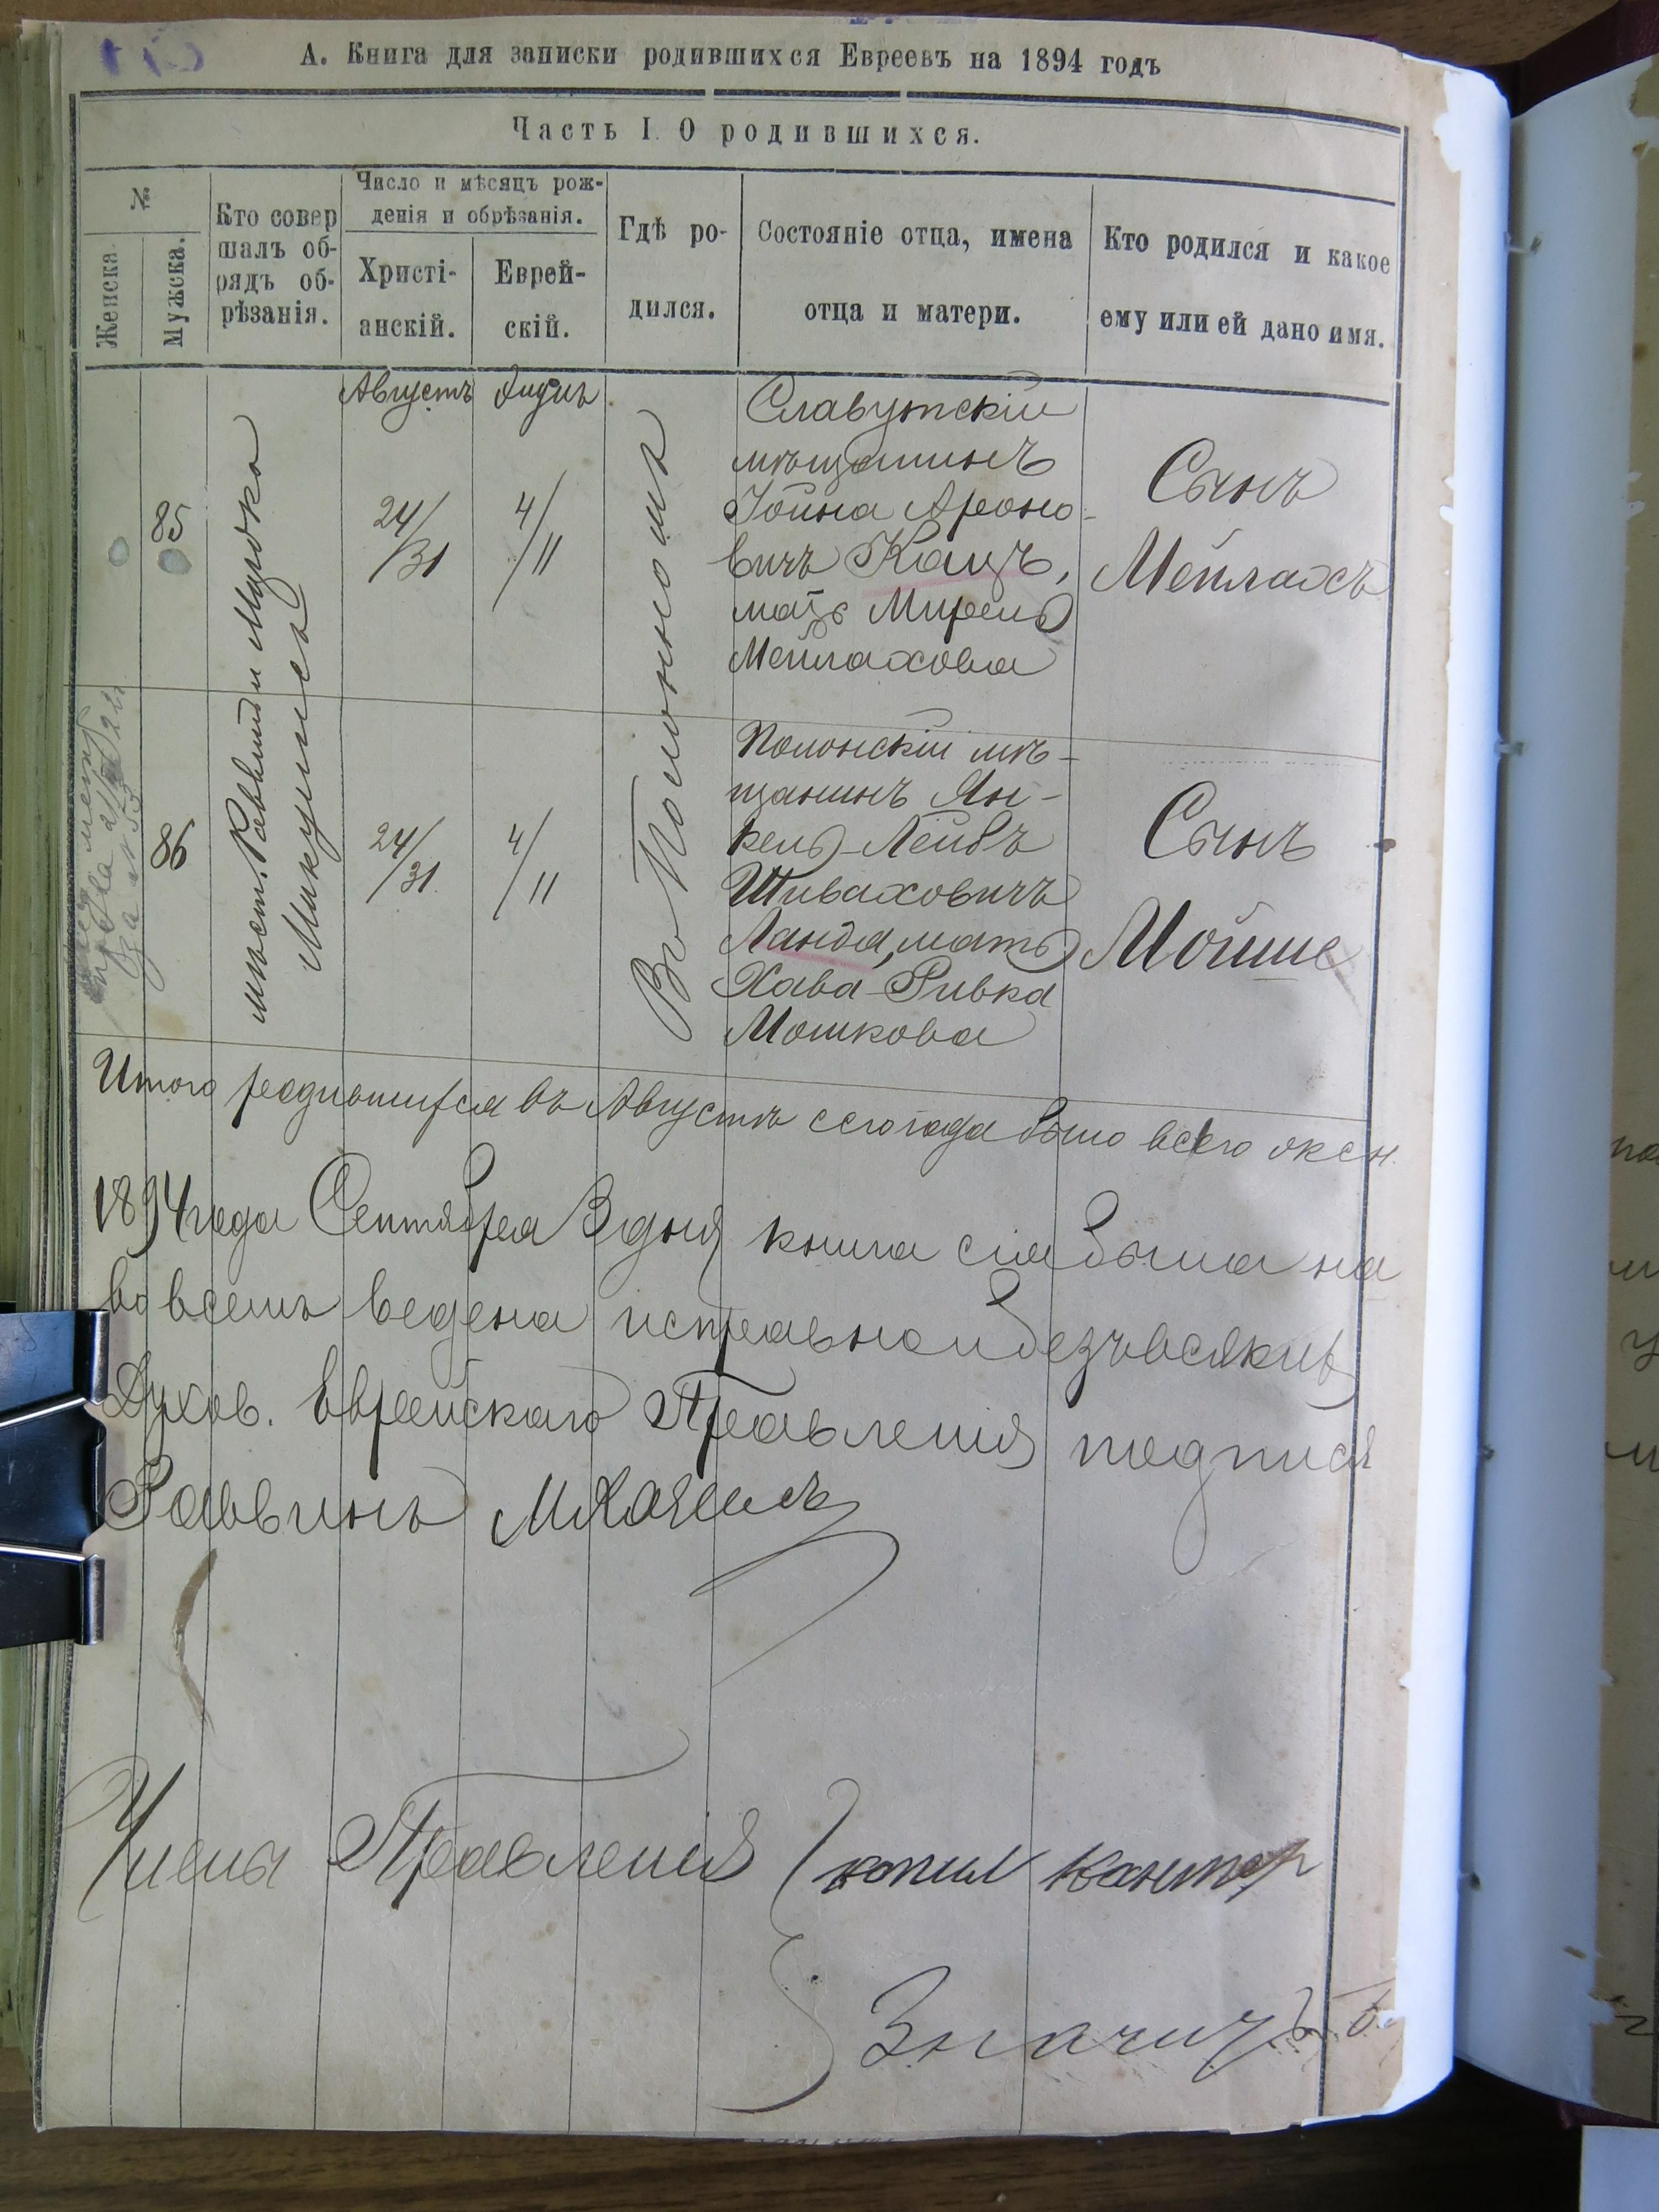 А. Книга для записки родившихся Евреевъ на 1894 годъ
Часть I. О родившихся.
№
Женска
Мужска.
Кто совер
шалъ об-
рядъ об-
рѣзанія.
Число и мѣсяцъ рож-
денія и обрѣзанія.
Христі-
анскій.
Еврей-
скій.
Гдѣ ро-
дился.
Состояніе отца, имена
отца и матери.
Кто родился и какое
ему или ей дано имя.
Августъ
85
24/
/31
4/
/11
Славутскій
мѣщанинъ
Іойна Ароно-
вичъ Кацъ,
мать Мирель
Мейлахова
Сынъ
Мейлахъ
мѣст. Раввинъ и
Микулинскъ
Въ Полонномъ
86
24/
/31.
4/
/11
Полонскій мѣ-
щанинъ Ян-
кель-Лейбъ
Шваховичъ
Ланда, мать
Хава-Ривка
Мошкова
Сынъ
Мойше
Итого родившихся въ Августѣ сего года было всего
1894 года Сентября 3 дня книга сія была на
во всемъ ведена исправно и безъ всякихъ
Духов. Еврейскаго Правленія подпися
Раввинъ
Члены Правленія
копил кантор